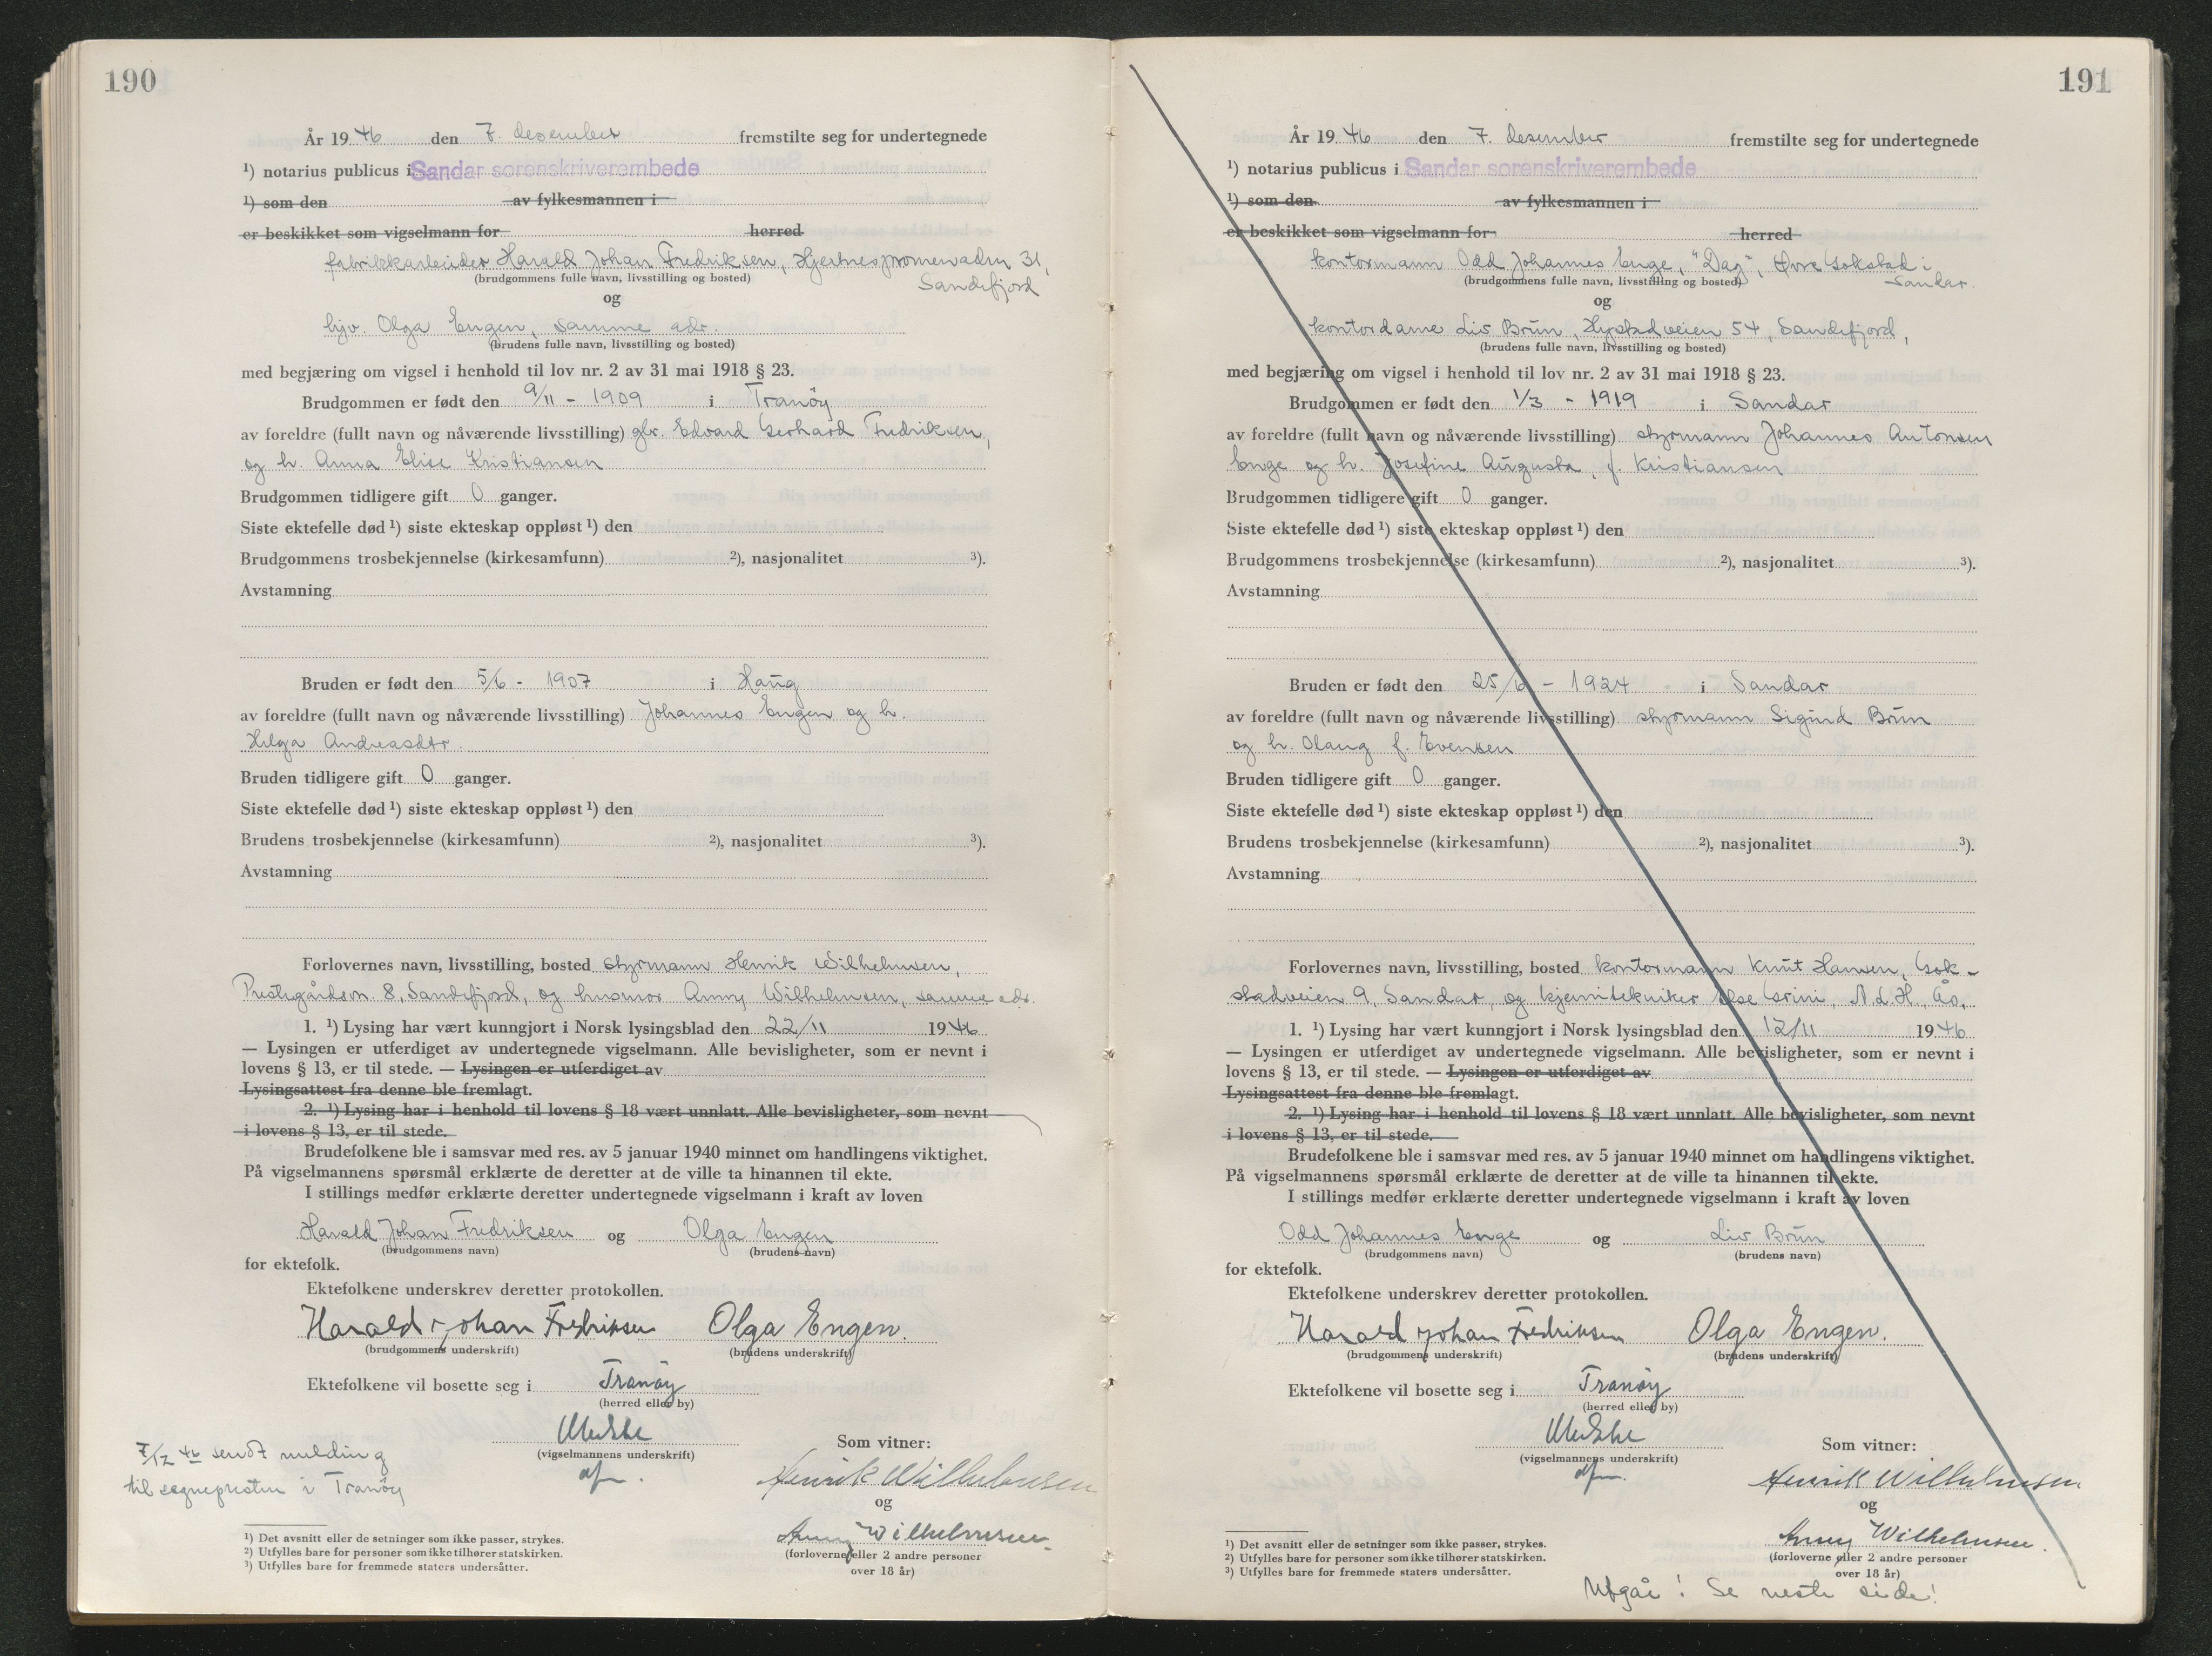 190
År 1946 den 7. desember fremstilte seg for undertegnede
¹) notarius publicus i Sandar sorenskriverembede
¹) som den av fylkesmannen i
er beskikket som vigselmann for herred
fabrikkarbeider Harald Johan Fredriksen, Hjertnespromenaden 31,
(brudgommens fulle navn, livsstilling og bosted) Sandefjord
og
hjv. Olga Engen, samme adr.
(brudens fulle navn, livsstilling og bosted)
med begjæring om vigsel i henhold til lov nr. 2 av 31 mai 1918 § 23.
Brudgommen er født den 9/11 - 1909 i Tranöy
av foreldre (fullt navn og nåværende livsstilling) gbr. Edvard Gerhard Fredriksen,
og h. Anna Elise Kristiansen
Brudgommen tidligere gift 0 ganger.
Siste ektefelle død ¹) siste ekteskap oppløst ¹) den
Brudgommens trosbekjennelse (kirkesamfunn) ²), nasjonalitet ³).
Avstamning
Bruden er født den 5/6 - 1907 i Haug
av foreldre (fullt navn og nåværende livsstilling) Johannes Engen og h.
Helga Andreasdtr.
Bruden tidligere gift 0 ganger.
Siste ektefelle død ¹) siste ekteskap oppløst ¹) den
Brudens trosbekjennelse (kirkesamfunn) ²), nasjonalitet ³).
Avstamning
Forlovernes navn, livsstilling, bosted styrmann Henrik Wilhelmsen,
Prestegårdsvn. 8, Sandefjord, og husmor Anny Wilhelmsen, samme adr.
1. ¹) Lysing har vært kunngjort i Norsk lysingsblad den 22/11 1946
— Lysingen er utferdiget av undertegnede vigselmann. Alle bevisligheter, som er nevnt i
lovens § 13, er til stede. — Lysingen er utferdiget av
Lysingsattest fra denne ble fremlagt.
2. ¹) Lysing har i henhold til lovens § 18 vært unnlatt. Alle bevisligheter, som nevnt
i lovens § 13, er til stede.
Brudefolkene ble i samsvar med res. av 5 januar 1940 minnet om handlingens viktighet.
På vigselmannens spørsmål erklærte de deretter at de ville ta hinannen til ekte.
I stillings medfør erklærte deretter undertegnede vigselmann i kraft av loven
Harald Johan Fredriksen og Olga Engen
(brudgommens navn) (brudens navn)
for ektefolk.
Ektefolkene underskrev deretter protokollen.
Harald Johan Fredriksen Olga Engen.
(brudgommens underskrift) (brudens underskrift)
Ektefolkene vil bosette seg i Tranöy
(herred eller by)
(vigselmannens underskrift) Som vitner:
7/12 46 sendt melding
til sogneprestn i Tranöy
Henrik Wilhelmsen
og
Anny Wilhelmsen.
(forloverne eller 2 andre personer
over 18 år)
¹) Det avsnitt eller de setninger som ikke passer, strykes.
²) Utfylles bare for personer som ikke tilhører statskirken.
³) Utfylles bare for fremmede staters undersåtter.
191
År 1946 den 7. desember fremstilte seg for undertegnede
¹) notarius publicus i Sandar sorenskriverembede
¹) som den av fylkesmannen i
er beskikket som vigselmann for herred
kontormann Odd Johannes Enge, "Dag", Øvre Gokstad i
(brudgommens fulle navn, livsstilling og bosted) Sandar.
og
kontordame Liv Brun, Hystadveien 54, Sandefjord,
(brudens fulle navn, livsstilling og bosted)
med begjæring om vigsel i henhold til lov nr. 2 av 31 mai 1918 § 23.
Brudgommen er født den 1/3 - 1919 i Sandar
av foreldre (fullt navn og nåværende livsstilling) styrmann Johannes Antonsen
Enge og h. Josefine Augusta, f. Kristiansen
Brudgommen tidligere gift 0 ganger.
Siste ektefelle død ¹) siste ekteskap oppløst ¹) den
Brudgommens trosbekjennelse (kirkesamfunn) ²), nasjonalitet ³).
Avstamning
Bruden er født den 25/6 - 1924 i Sandar
av foreldre (fullt navn og nåværende livsstilling) styrmann Sigurd Brun
og h. Olaug f. Evensen
Bruden tidligere gift 0 ganger.
Siste ektefelle død ¹) siste ekteskap oppløst ¹) den
Brudens trosbekjennelse (kirkesamfunn) ²), nasjonalitet ³).
Avstamning
Forlovernes navn, livsstilling, bosted kontormann Knut Hansen, Gok-
stadveien 9, Sandar, og kjemitekniker Else Grini, N.L.H., Ås.
1. ¹) Lysing har vært kunngjort i Norsk lysingsblad den 12/11 1946
— Lysingen er utferdiget av undertegnede vigselmann. Alle bevisligheter, som er nevnt i
lovens § 13, er til stede. — Lysingen er utferdiget av
Lysingsattest fra denne ble fremlagt.
2. ¹) Lysing har i henhold til lovens § 18 vært unnlatt. Alle bevisligheter, som nevnt
i lovens § 13, er til stede.
Brudefolkene ble i samsvar med res. av 5 januar 1940 minnet om handlingens viktighet.
På vigselmannens spørsmål erklærte de deretter at de ville ta hinannen til ekte.
I stillings medfør erklærte deretter undertegnede vigselmann i kraft av loven
Odd Johannes Enge og Liv Brun
(brudgommens navn) (brudens navn)
for ektefolk.
Ektefolkene underskrev deretter protokollen.
Harald Johan Fredriksen Olga Engen.
(brudgommens underskrift) (brudens underskrift)
Ektefolkene vil bosette seg i Tranöy
(herred eller by)
(vigselmannens underskrift) Som vitner:
Henrik Wilhelmsen
og
Anny Wilhelmsen.
(forloverne eller 2 andre personer
over 18 år)
¹) Det avsnitt eller de setninger som ikke passer, strykes.
²) Utfylles bare for personer som ikke tilhører statskirken.
³) Utfylles bare for fremmede staters undersåtter.
Utgår! Se neste side!